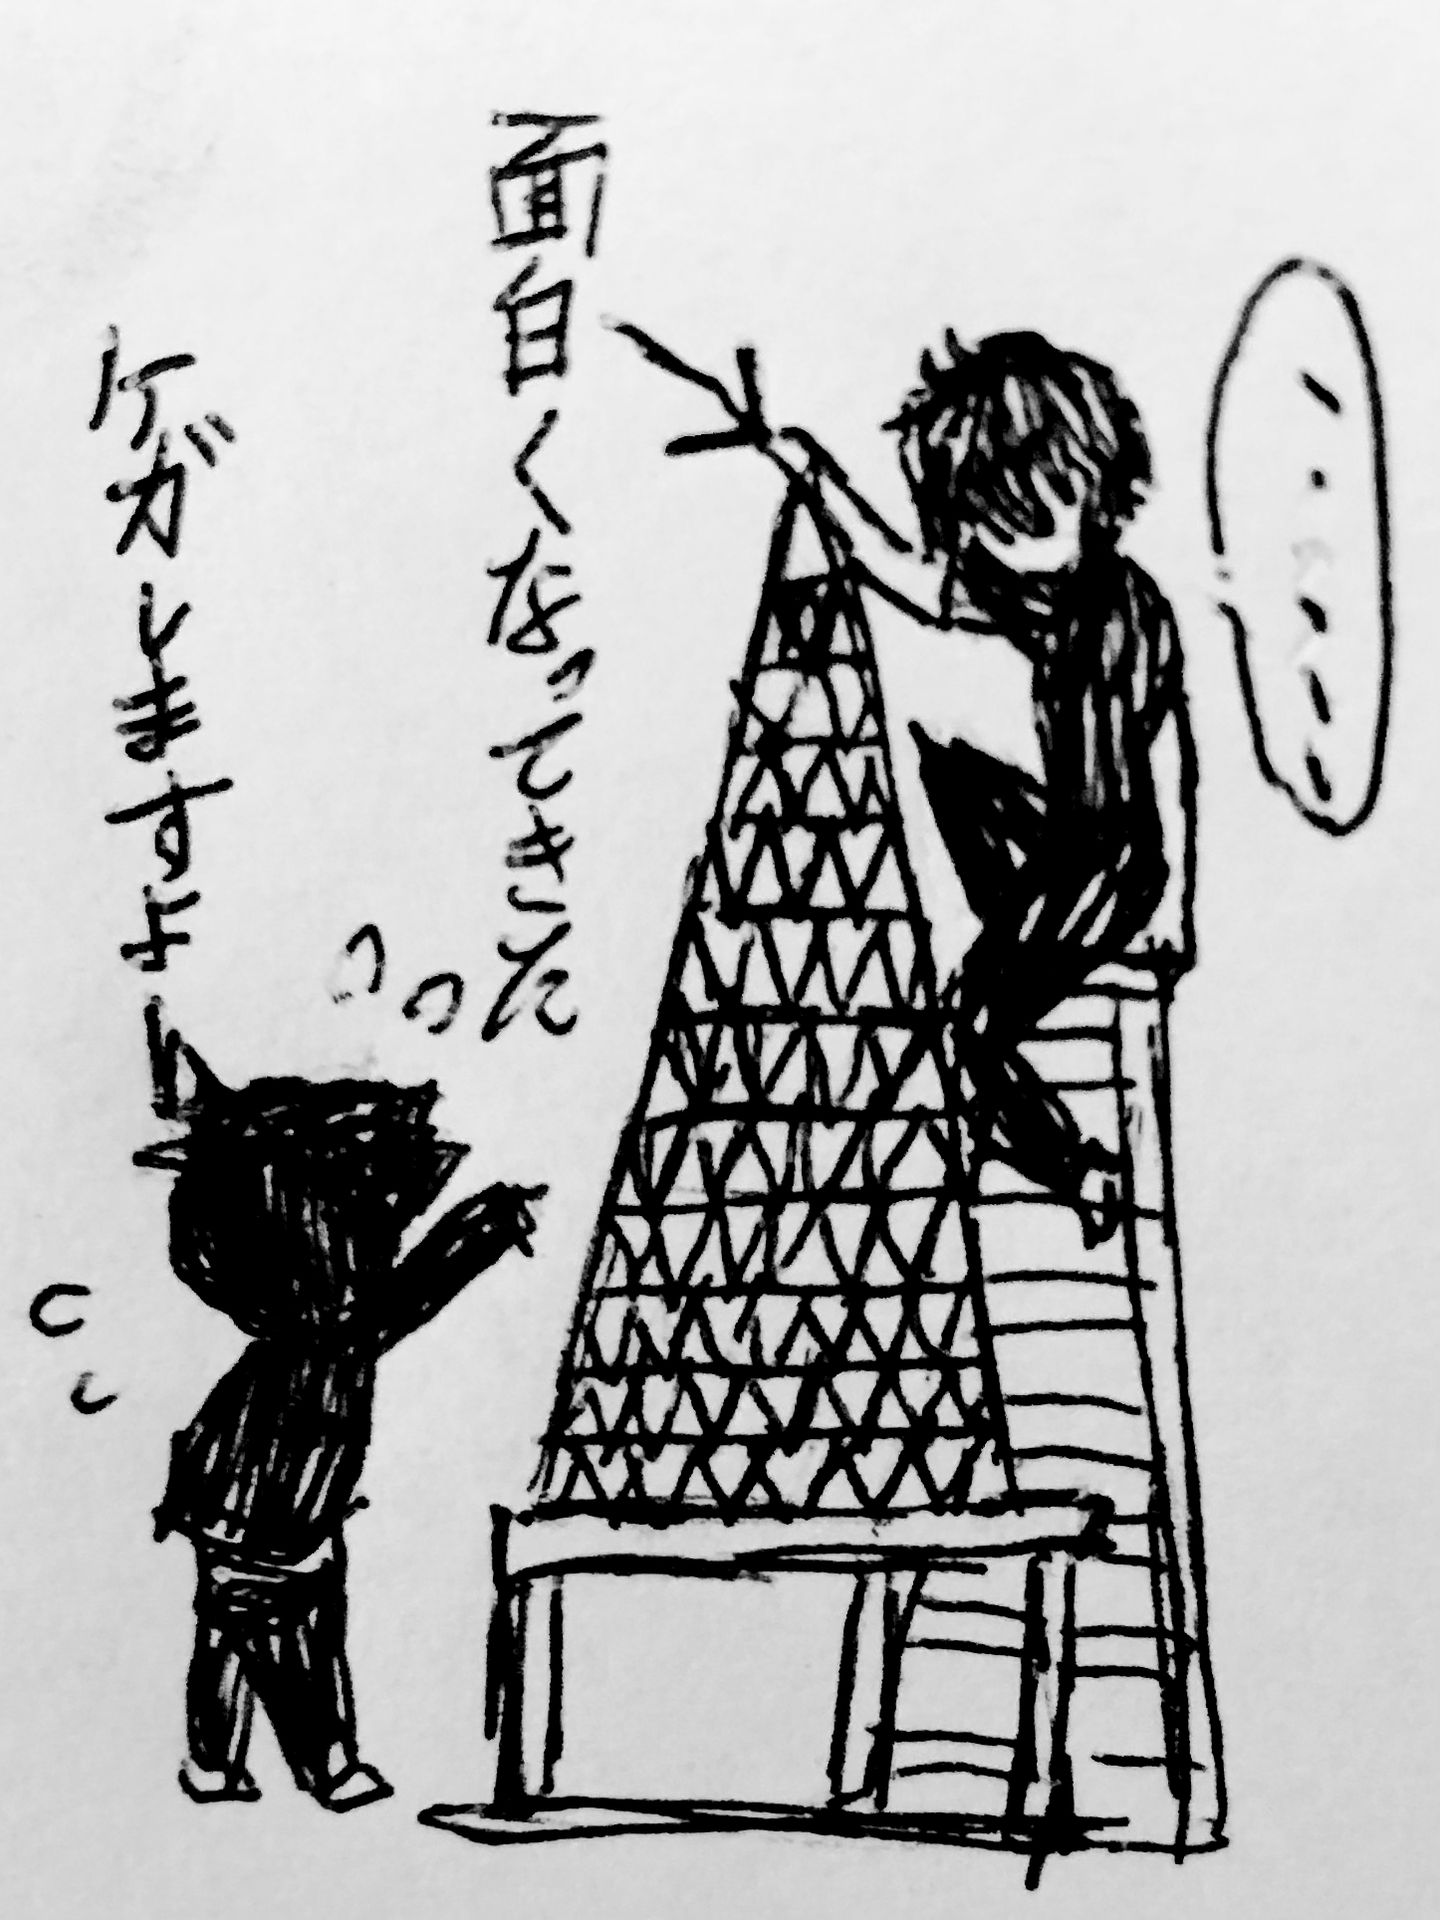 ・・・・・
面白くなってきた
ケガしますよー